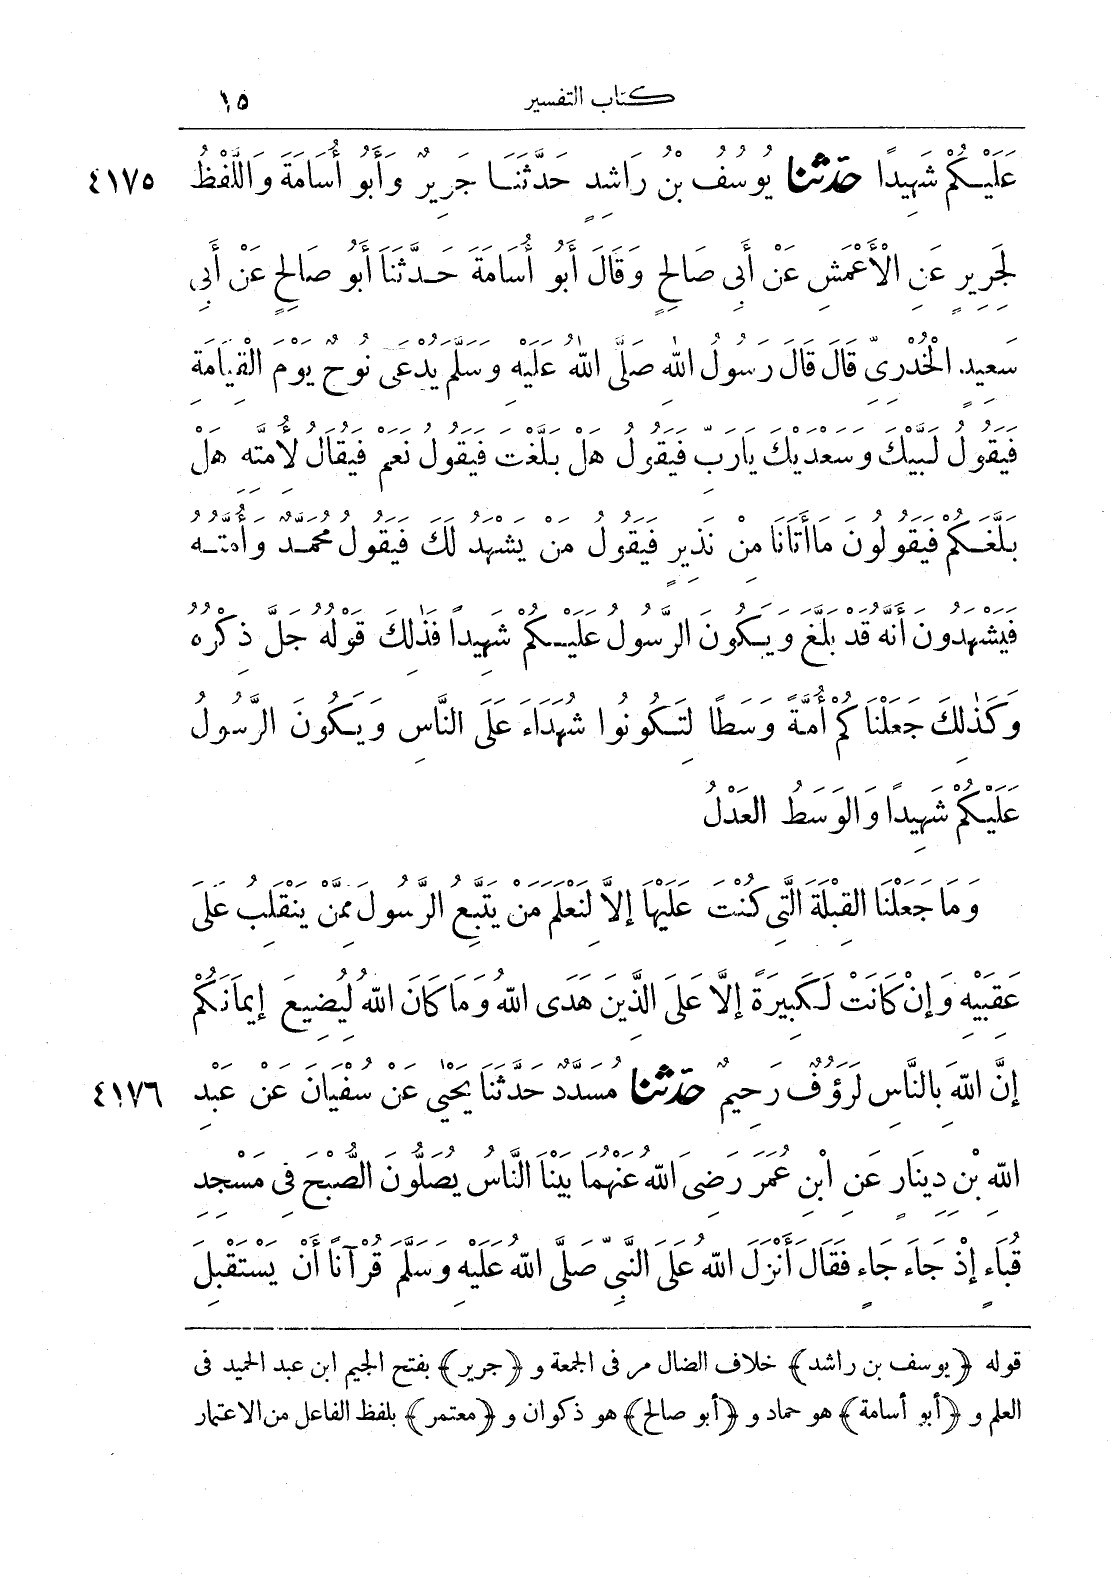 كتاب التفسير ١٥
عَلَيْكُمْ شَهِيدًا حَدَّثَنَا يُوسُفُ بْنُ رَاشِدٍ حَدَّثَنَا جَرِيرٌ وَأَبُو أُسَامَةَ وَاللَّفْظُ ٤١٧٥
لِجَرِيرٍ عَنِ الْأَعْمَشِ عَنْ أَبِي صَالِحٍ وَقَالَ أَبُو أُسَامَةَ حَدَّثَنَا أَبُو صَالِحٍ عَنْ أَبِي
سَعِيدٍ الْخُدْرِيِّ قَالَ قَالَ رَسُولُ اللهِ صَلَّى اللهُ عَلَيْهِ وَسَلَّمَ يُدْعَى نُوحٌ يَوْمَ الْقِيَامَةِ
فَيَقُولُ لَبَّيْكَ وَسَعْدَيْكَ يَارَبِّ فَيَقُولُ هَلْ بَلَّغْتَ فَيَقُولُ نَعَمْ فَيُقَالُ لِأُمَّتِهِ هَلْ
بَلَّغَكُمْ فَيَقُولُونَ مَاأَتَانَا مِنْ نَذِيرٍ فَيَقُولُ مَنْ يَشْهَدُ لَكَ فَيَقُولُ مُحَمَّدٌ وَأُمَّتُهُ
فَيَشْهَدُونَ أَنَّهُ قَدْ بَلَّغَ وَيَكُونَ الرَّسُولُ عَلَيْكُمْ شَهِيدًا فَذٰلِكَ قَوْلُهُ جَلَّ ذِكْرُهُ
وَكَذٰلِكَ جَعَلْنَاكُمْ أُمَّةً وَسَطًا لِتَكُونُوا شُهَدَاءَ عَلَى النَّاسِ وَيَكُونَ الرَّسُولُ
عَلَيْكُمْ شَهِيدًا وَالوَسَطُ العَدْلُ
وَمَا جَعَلْنَا القِبْلَةَ الَّتِي كُنْتَ عَلَيْهَا إِلَّا لِنَعْلَمَ مَنْ يَتَّبِعُ الرَّسُولَ مِمَّنْ يَنْقَلِبُ عَلَى
عَقِبَيْهِ وَإِنْ كَانَتْ لَكَبِيرَةً إِلَّا عَلَى الَّذِينَ هَدَى اللهُ وَمَا كَانَ اللهُ لِيُضِيعَ إِيمَانَكُمْ
إِنَّ اللهَ بِالنَّاسِ لَرَؤُفٌ رَحِيمٌ حَدَّثَنَا مُسَدَّدٌ حَدَّثَنَا يَحْيٰى عَنْ سُفْيَانَ عَنْ عَبْدِ ٤١٧٦
اللهِ بْنِ دِينَارٍ عَنِ ابْنِ عُمَرَ رَضِيَ اللهُ عَنْهُمَا بَيْنَا النَّاسُ يُصَلُّونَ الصُّبْحَ فِي مَسْجِدِ
قُبَاءٍ إِذْ جَاءَ جَاءٍ فَقَالَ أَنْزَلَ اللهُ عَلَى النَّبِيِّ صَلَّى اللهُ عَلَيْهِ وَسَلَّمَ قُرْآنًا أَنْ يَسْتَقْبِلَ
قوله ﴿يوسف بن راشد﴾ خلاف الضال مر فى الجمعة و ﴿جرير﴾ بفتح الجيم ابن عبد الحميد فى
العلم و ﴿أبو أسامة﴾ هو حماد و ﴿أبو صالح﴾ هو ذكوان و ﴿معتمر﴾ بلفظ الفاعل من الاعتمار